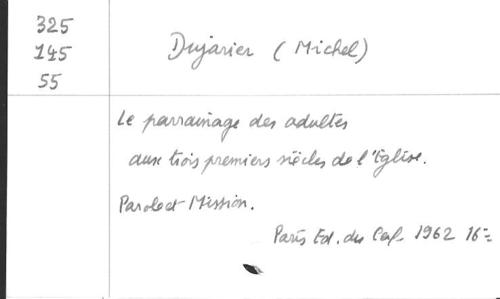 325
145
55
Dujarier (Michel)
Le parrainage des adultes
aux trois premiers siècles de l'Eglise.
Parole et Mission.
Paris Ed. du Cerf. 1962 16=